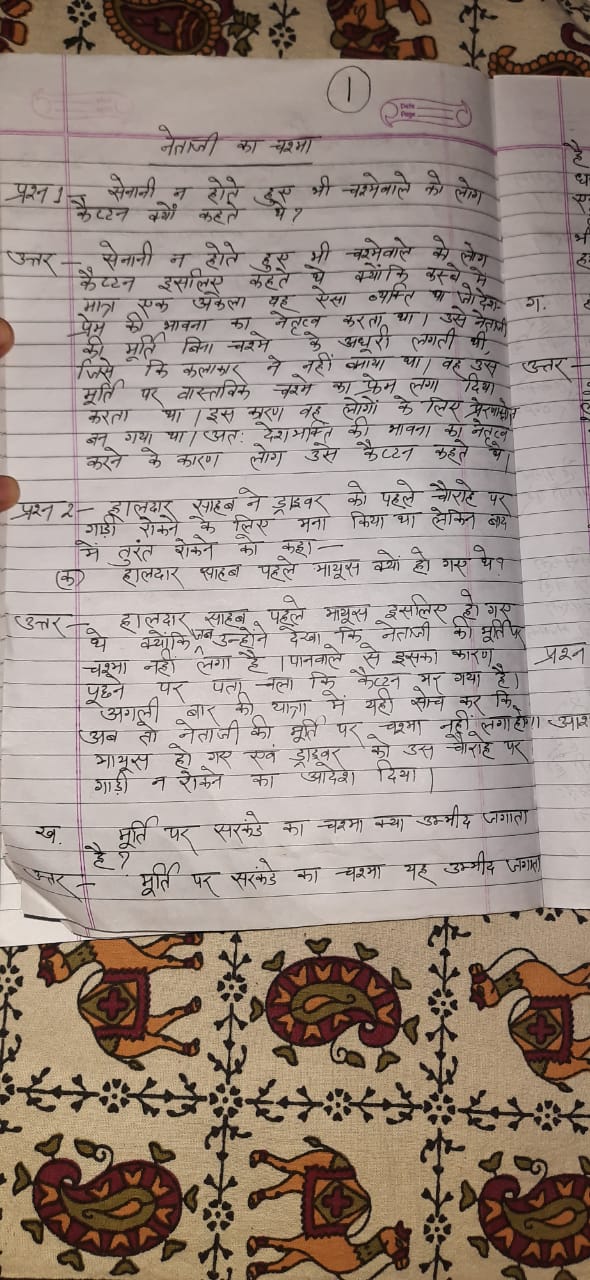 1
Date
Page
नेताजी का चश्मा
प्रश्न 1- सेनानी न होते हुए भी चश्मेवाले को लोग
कैप्टन क्यों कहते थे?
उत्तर - सेनानी न होते हुए भी चश्मेवाले को लोग
कैप्टन इसलिए कहते थे क्योंकि कस्बे में
मात्र एक अकेला वह ऐसा व्यक्ति था जो देश-
प्रेम की भावना का नेतृत्व करता था। उसे नेताजी
की मूर्ति बिना चश्मे के अधूरी लगती थी,
जिसे कि कलाकार ने नहीं बनाया था। वह उस
मूर्ति पर वास्तविक चश्मे का फ्रेम लगा दिया
करता था। इस कारण वह लोगों के लिए प्रेरणास्रोत
बन गया था। अतः देशभक्ति की भावना का नेतृत्व
करने के कारण लोग उसे कैप्टन कहते थे।
प्रश्न 2- हालदार साहब ने ड्राइवर को पहले चौराहे पर
गाड़ी रोकने के लिए मना किया था लेकिन बाद
में तुरंत रोकने को कहा —
(क) हालदार साहब पहले मायूस क्यों हो गए थे?
उत्तर - हालदार साहब पहले मायूस इसलिए हो गए
थे क्योंकि जब उन्होंने देखा कि नेताजी की मूर्ति पर
चश्मा नहीं लगा है। पानवाले से इसका कारण
पूछने पर पता चला कि कैप्टन मर गया है।
अगली बार की यात्रा में यही सोच कर कि
अब तो नेताजी की मूर्ति पर चश्मा नहीं लगा होगा
मायूस हो गए एवं ड्राइवर को उस चौराहे पर
गाड़ी न रोकने का आदेश दिया।
ख. मूर्ति पर सरकंडे का चश्मा क्या उम्मीद जगाता
है?
उत्तर - मूर्ति पर सरकंडे का चश्मा यह उम्मीद जगाता
है
ग.
उत्तर -
प्रश्न